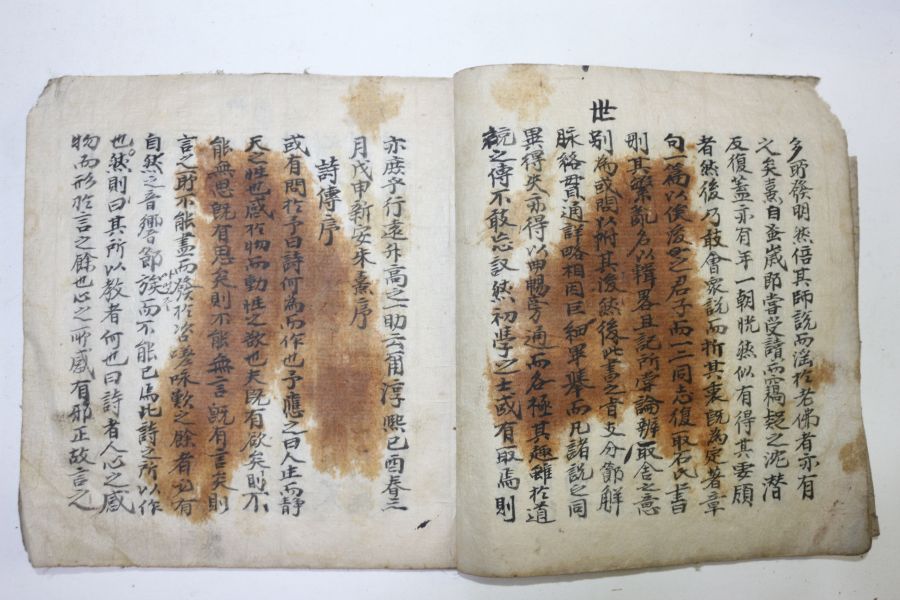 世
多所發明然倍其師說而淫於老佛者亦有
之矣熹自蚤歲卽嘗受讀而竊疑之沈潛
反復蓋亦有年一朝恍然似有得其要領
者然後乃敢會衆說而折其衷旣爲定著章
句一篇以俟後之君子而一二同志復取石氏書
刪其繁亂名以輯畧且記所嘗論辨取舍之意
別爲或問以附其後然後此書之旨支分節解
脉絡貫通詳略相因巨細畢擧而凡諸說之同
異得失亦得以曲暢旁通而各極其趣雖於道
統之傳不敢忘議然初學之士或有取焉則
亦庶乎行遠升高之一助云爾淳熙己酉春三
月戊申新安朱熹序
詩傳序
或有問於予曰詩何爲而作也予應之曰人生而靜
天之性也感於物而動性之欲也夫旣有欲矣則不
能無思旣有思矣則不能無言旣有言矣則
言之所不能盡而發於咨嗟咏歎之餘者必有
自然之音響節族而不能已焉此詩之所以作
也然則曰其所以教者何也曰詩者人心之感
物而形於言之餘也心之所感有邪正故言之